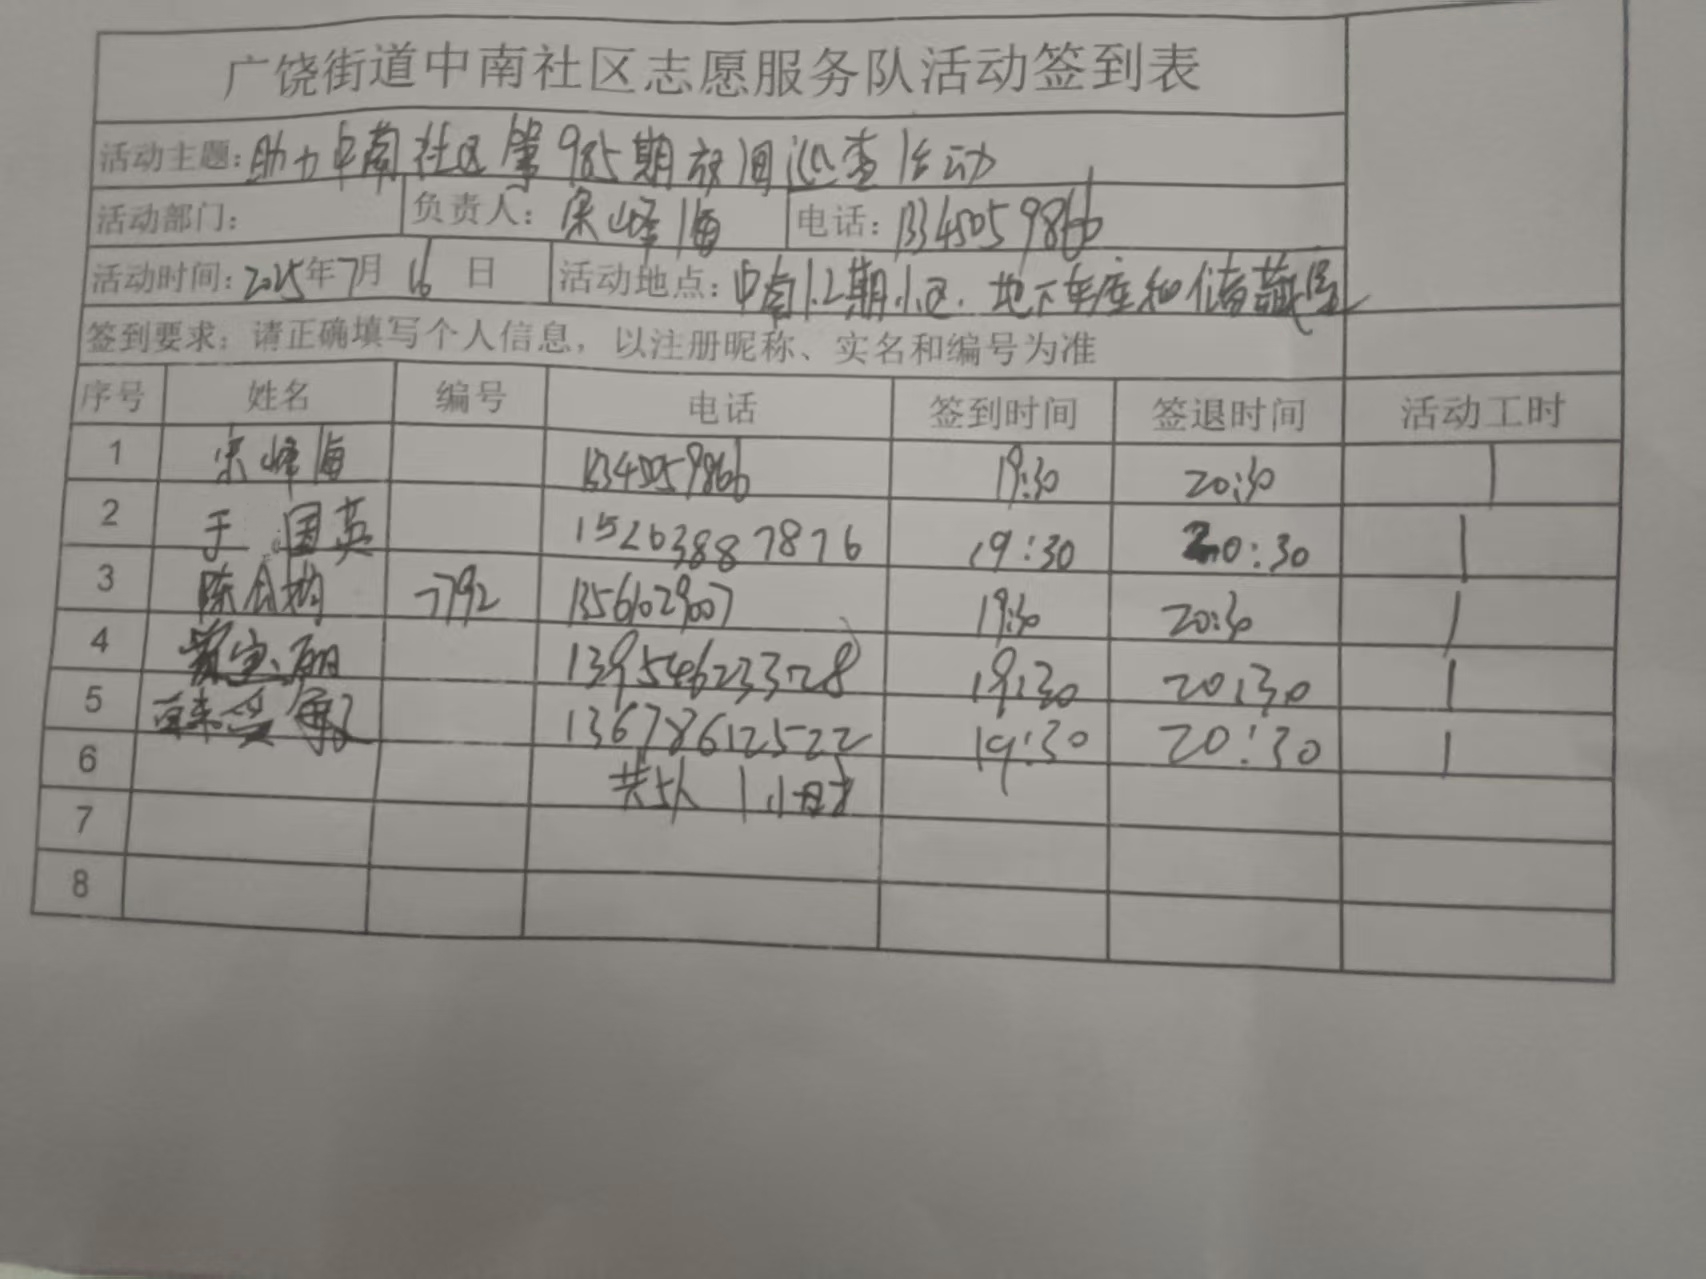 广饶街道中南社区志愿服务队活动签到表
活动主题：助力中南社区第985期夜间巡查活动
活动部门： 负责人：宋峰海 电话：13345059866
活动时间：2025年7月16日 活动地点：中南1.2期小区.地下车库和储藏室
签到要求：请正确填写个人信息，以注册昵称、实名和编号为准
序号 姓名 编号 电话 签到时间 签退时间 活动工时
1 宋峰海 13345059866 19:30 20:30 1
2 于国英 15263887876 19:30 20:30 1
3 陈 7792 19:30 20:30 1
4 13954623328 19:30 20:30 1
5 13678612522 19:30 20:30 1
6 共5人 1小时
7
8